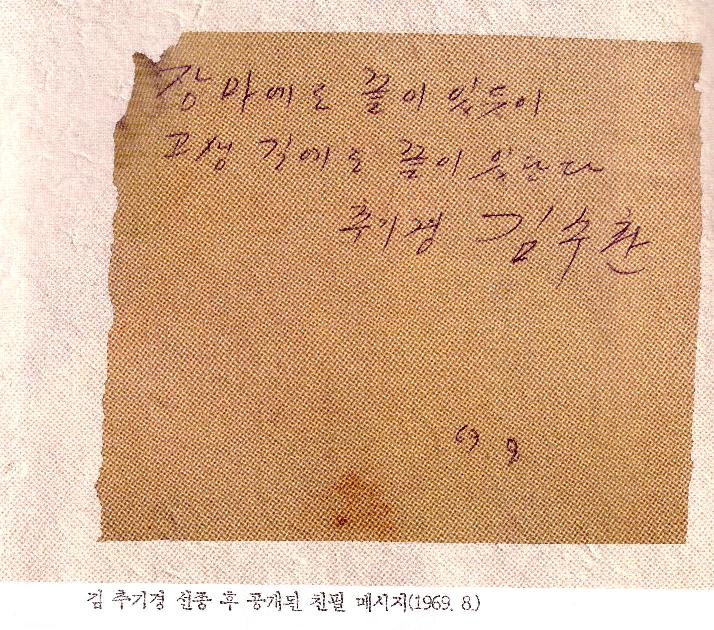 장마에도 끝이 있듯이
고생 길에도 끝이 있단다
추기경 김수환
69 8
김 추기경 선종 후 공개된 친필 메시지(1969. 8.)